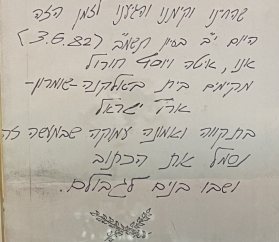 שהחיינו וקיימנו והגיענו לזמן הזה
היום י"ב בסיון תשמ"ב (3.6.82)
אנו, איטה ויוסף
מקימים בית באלקנה-שומרון-
ארץ ישראל
בתקווה ואמונה עמוקה שבמעשה זה
נסמל את הכתוב
ושבו בנים לגבולם.